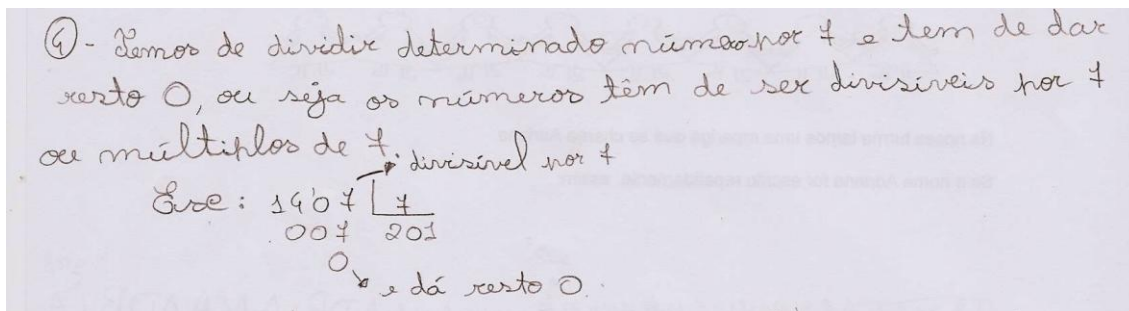 4 - Temos de dividir determinado número por 7 e tem de dar
resto 0, ou seja os números têm de ser divisíveis por 7
ou múltiplos de 7.
divisível por 7
Exe: 1407 7
007 201
0
e dá resto 0.